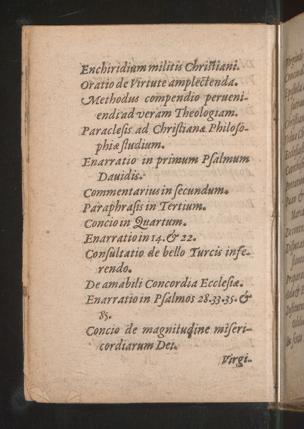 Enchiridium militis Christiani.
Oratio de Virtute amplectenda.
Methodus compendio perueni-
endi ad veram Theologiam.
Paraclesis ad Christianæ Philoso-
phiæ studium.
Enarratio in primum Psalmum
Dauidis.
Commentarius in secundum.
Paraphrasis in Tertium.
Concio in Quartum.
Enarratio in 14. & 22.
Consultatio de bello Turcis infe-
rendo.
De amabili Concordia Ecclesiæ.
Enarratio in Psalmos 28.33.35. &
85.
Concio de magnitudine miseri-
cordiarum Dei.
Virgi-